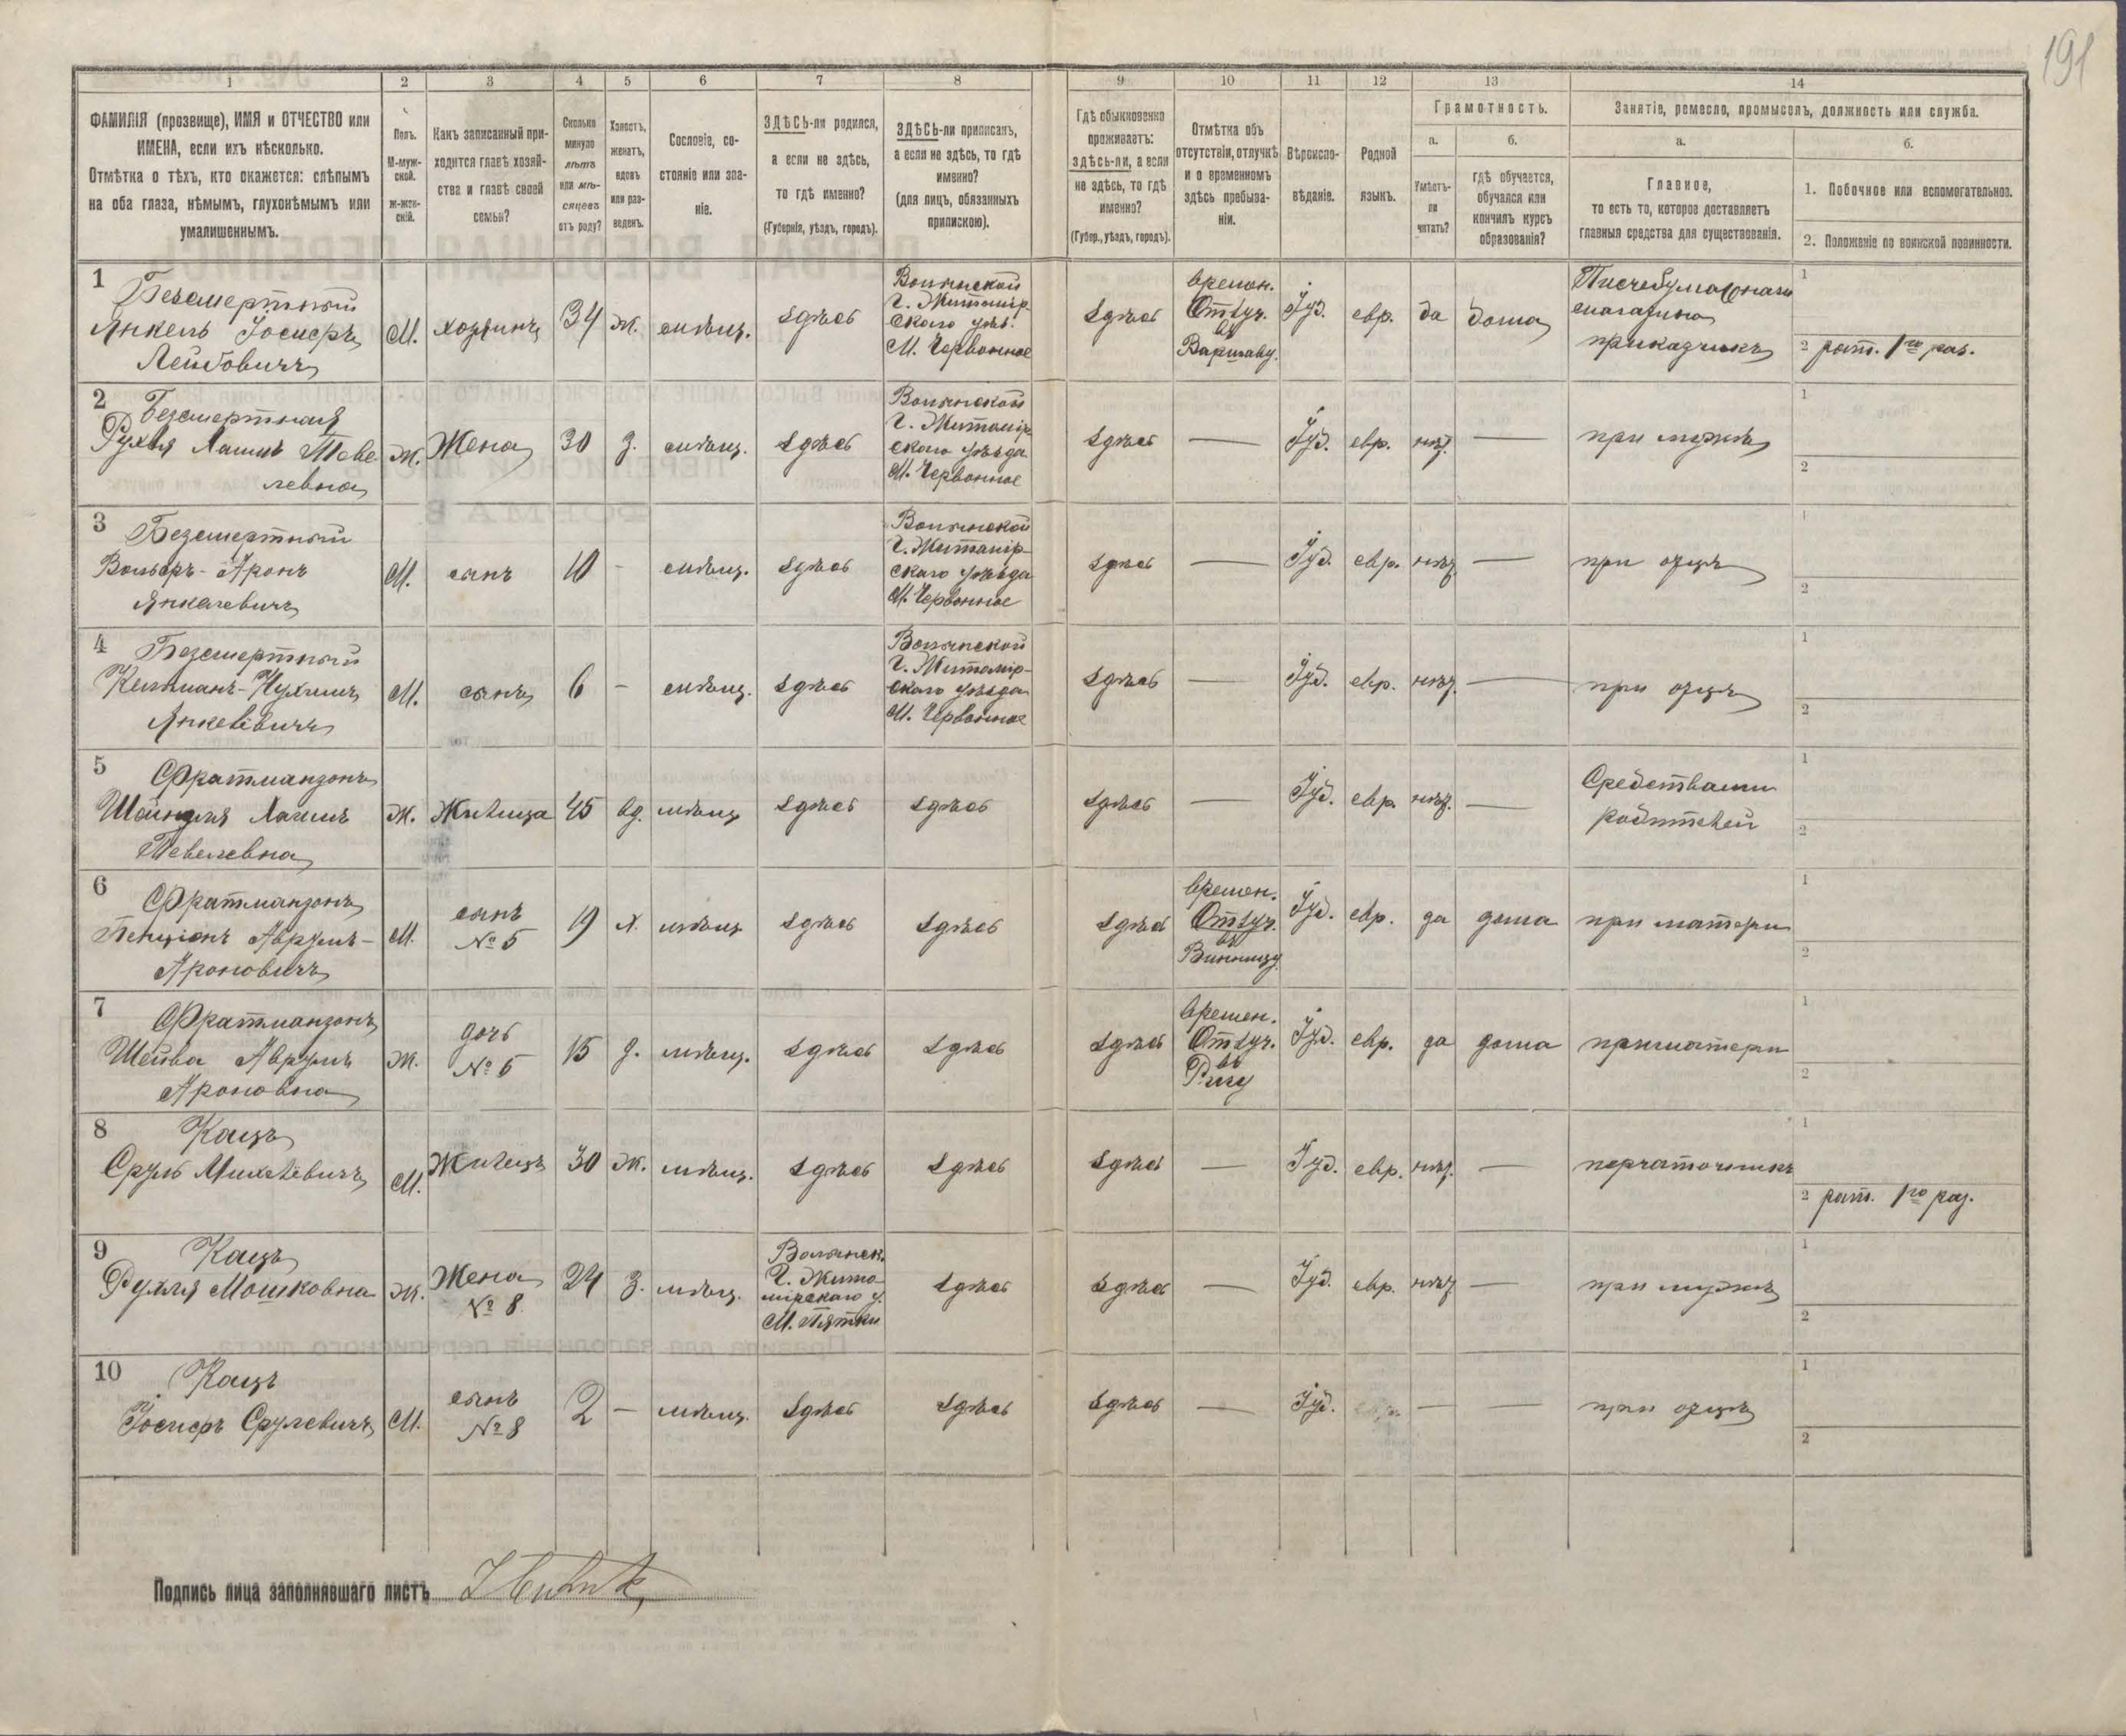 191
1 2 3 4 5 6 7 8 9 10 11 12 13 14
ФАМИЛІЯ (прозвище), ИМЯ и ОТЧЕСТВО или
ИМЕНА, если ихъ нѣсколько.
Отмѣтка о тѣхъ, кто окажется: слѣпымъ
на оба глаза, нѣмымъ, глухонѣмымъ или
умалишеннымъ.
Полъ.
М-муж-
ской.
Ж-жен-
скій.
Какъ записанный при-
ходится главѣ хозяй-
ства и главѣ своей
семьи?
Сколько
минуло
лѣтъ
или мѣ-
сяцевъ
отъ роду?
Холостъ,
женатъ,
вдовъ
или раз-
веденъ.
Сословіе, со-
стояніе или зва-
ніе.
ЗДѢСЬ-ли родился,
а если не здѣсь,
то гдѣ именно?
(Губернія, уѣздъ, городъ).
ЗДѢСЬ-ли приписанъ,
а если не здѣсь, то гдѣ
именно?
(для лицъ, обязанныхъ
припискою).
Гдѣ обыкновенно
проживаетъ:
здѣсь-ли, а если
не здѣсь, то гдѣ
именно?
(Губер., уѣздъ, городъ).
Отмѣтка объ
отсутствіи, отлучкѣ
и о временномъ
здѣсь пребыва-
ніи.
Вѣроиспо-
вѣданіе.
Родной
языкъ.
Грамотность.
а.
Умѣетъ-
ли
читать?
б.
гдѣ обучается,
обучался или
кончилъ курсъ
образованія?
Занятіе, ремесло, промыселъ, должность или служба.
а.
Главное,
то есть то, которое доставляетъ
главныя средства для существованія.
б.
1. Побочное или вспомогательное.
2. Положеніе по воинской повинности.
1
Безсмертный
Янкель Іосифъ
Лейбовичъ
М.
хозяинъ
34
ж.
мѣщ.
здѣсь
Волынской
г. Житомір
скаго уѣз.
М. Червонное
здѣсь
времен.
Отлуч.
въ
Варшаву.
Іуд.
евр.
да
дома
Писчебумажнаго
магазина
приказчикъ
1
2 рат. 1го раз.
2
Безсмертная
Рухля Хашлъ Теве
левна
Ж.
Жена
30
з.
мѣщ.
здѣсь
Волынской
г. Житомір
скаго уѣзда
М. Червонное
здѣсь
—
Іуд.
евр.
нѣт.
—
при мужѣ
1
2
3
Безсмертный
Вольфъ-Аронъ
Янкелевичъ
М.
сынъ
10
-
мѣщ.
здѣсь
Волынской
г. Житомір-
скаго уѣзда
М. Червонное
здѣсь
—
Іуд.
евр.
нѣт
—
при отцѣ
1
2
4
Безсмертный
Янкелевичъ
М.
сынъ
6
-
мѣщ.
здѣсь
Волынской
г. Житомір-
скаго уѣзда
М. Червонное
здѣсь
—
Іуд.
евр.
нѣт.
—
при отцѣ
1
2
5
Фратманзонъ
Шейндля
Тевелевна
Ж.
Жилица
45
вд.
мѣщ
здѣсь
здѣсь
здѣсь
—
Іуд.
евр.
нѣт.
—
Средствами
родителей
1
2
6
Фратманзонъ
Бенціонъ Аврумъ-
Ароновичъ
М.
сынъ
№ 5
19
х.
мѣщ
здѣсь
здѣсь
здѣсь
времен.
Отлуч.
въ
Винницу.
Іуд.
евр.
да
дома
при матери
1
2
7
Фратманзонъ
Шейва Аврумъ
Ароновна
Ж.
дочь
№ 5
15
д.
мѣщ.
здѣсь
здѣсь
здѣсь
времен.
Отлуч.
въ
Ригу
Іуд.
евр.
да
дома
при матери
1
2
8
Кацъ
Сруль Михелевичъ
М.
Жилецъ
30
Ж.
мѣщ.
здѣсь
здѣсь
здѣсь
—
Іуд.
евр.
нѣт.
—
перчаточникъ
1
2 рат. 1го раз.
9
Кацъ
Рухля Мошковна
Ж.
Жена
№ 8.
24
З.
мѣщ.
Волынск.
г. Жито
мірскаго у.
М. Пятки
здѣсь
здѣсь
—
Іуд.
евр.
нѣт
—
при мужѣ
1
2
10
Кацъ
Іосифъ Срулевичъ
М.
сынъ
№ 8
2
—
мѣщ.
здѣсь
здѣсь
здѣсь
—
Іуд.
евр.
—
—
при отцѣ
1
2
Подпись лица заполнявшаго листъ